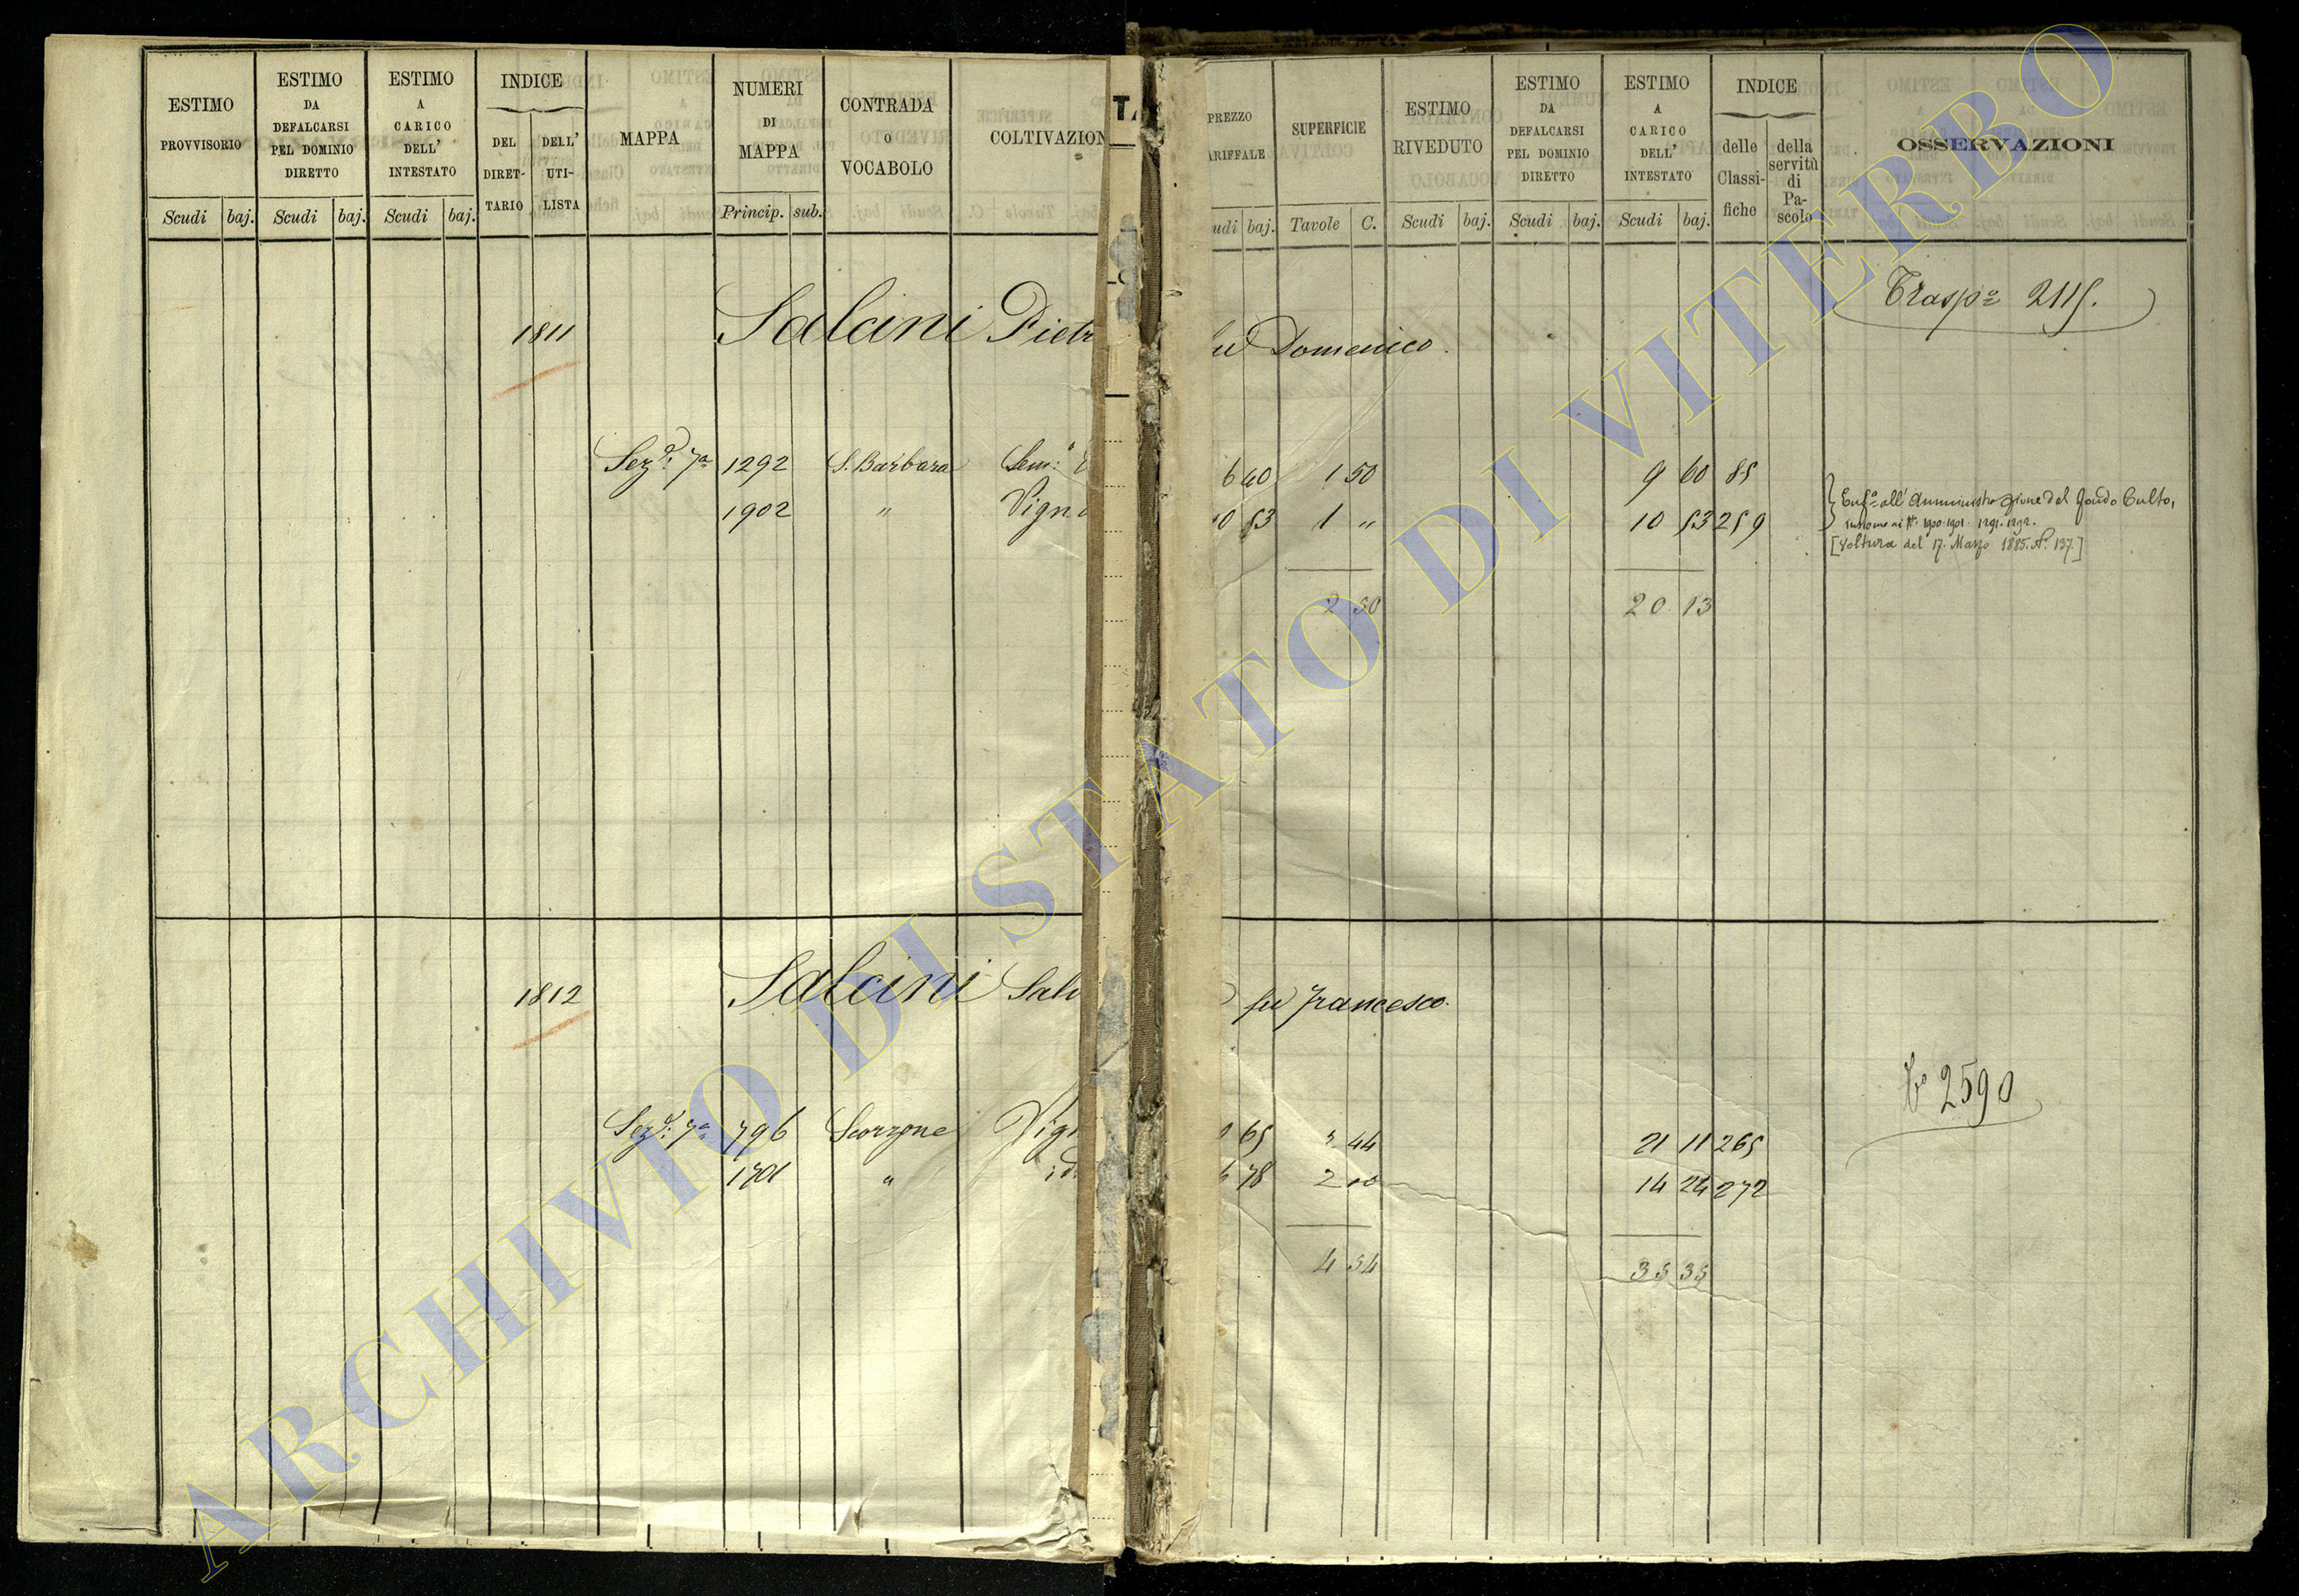 ESTIMO PROVVISORIO
Scudi baj.
ESTIMO DA DEFALCARSI PEL DOMINIO DIRETTO
Scudi baj.
ESTIMO A CARICO DELL' INTESTATO
Scudi baj.
INDICE
DEL DIRET-TARIO
DELL' UTI-LISTA
MAPPA
NUMERI DI MAPPA
Princip. sub.
CONTRADA O VOCABOLO
COLTIVAZION
PREZZO
ARIFFALE
udi baj.
SUPERFICIE
Tavole C.
ESTIMO RIVEDUTO
Scudi baj.
ESTIMO DA DEFALCARSI PEL DOMINIO DIRETTO
Scudi baj.
ESTIMO A CARICO DELL' INTESTATO
Scudi baj.
INDICE
delle Classi-fiche
della servitù di Pa-scolo
OSSERVAZIONI
Trasp.º 2115.
1811 Salcini Pietr fu Domenico.
Sez.: 7ª 1292 S. Barbara Sem: 6 40 1 50 9 60 85
1902 " Vign 10 53 1 " 10 53 259
Enf.º all' Amministrazione del fondo Culto,
insieme ai N. 1900. 1901. 1291. 1292.
[Voltura del 17. Marzo 1885. N. 137.]
2 50 20 13
1812 Salcini Salv fu Francesco.
2590
Sez.: 7ª 796 Scorzone Vig 65 44 21 11 265
1701 " id. 78 2 00 14 24 272
4 54 35 35
ARCHIVIO DI STATO DI VITERBO